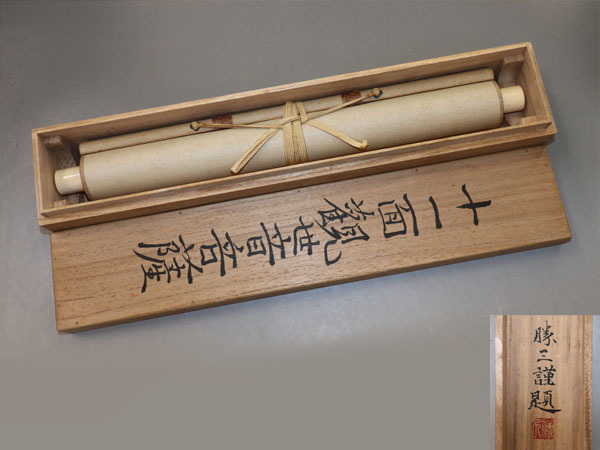 十一面観世音菩薩
勝三謹題